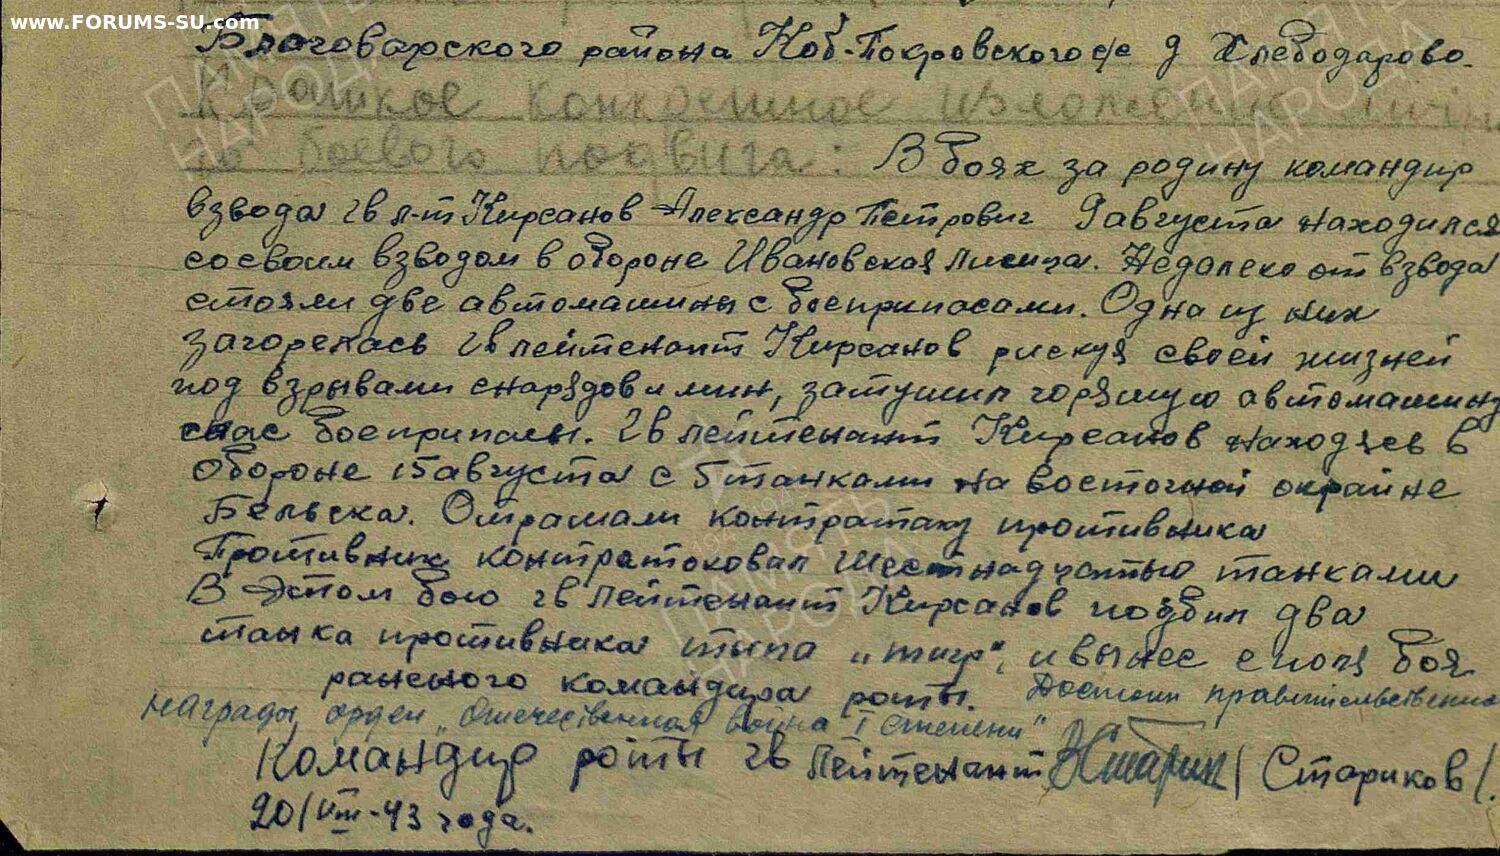 www.FORUMS-SU.com
Благоварского района Ноб-Покровского с/с д Хлебодарово.
Краткое конкретное изложение личн
го боевого подвига: В боях за родину командир
взвода гв л-т Кирсанов Александр Петрович 9 августа находился
сосвоим взводом в обороне Ивановская Лисица. Недалеко от взвода
стояли две автомашины с боеприпасами. Одна из них
загорелась гв лейтенант Кирсанов рискуя своей жизней
под взрывами снарядов и мин, затушил горящую автомашину
спас боеприпасы. Гв лейтенант Кирсанов находясь в
обороне 15 августа с 5 танками на восточной окрайне
Бельска. Отражали контратаку противника
Противник контратоковал шестнадцатью танками
В этом бою гв лейтенант Кирсанов подбил два
танка противника типа "тигр", и вынес с поля боя
раненого командира роты. Достоин правительственно
награды орден "Отечественная война I степени"
Командир роты гв лейтенант /Стариков/.
20/VIII-43 года.
ПАМЯТЬ НАРОДА
ПАМЯТЬ НАРОДА
ПАМЯТЬ НАРОДА